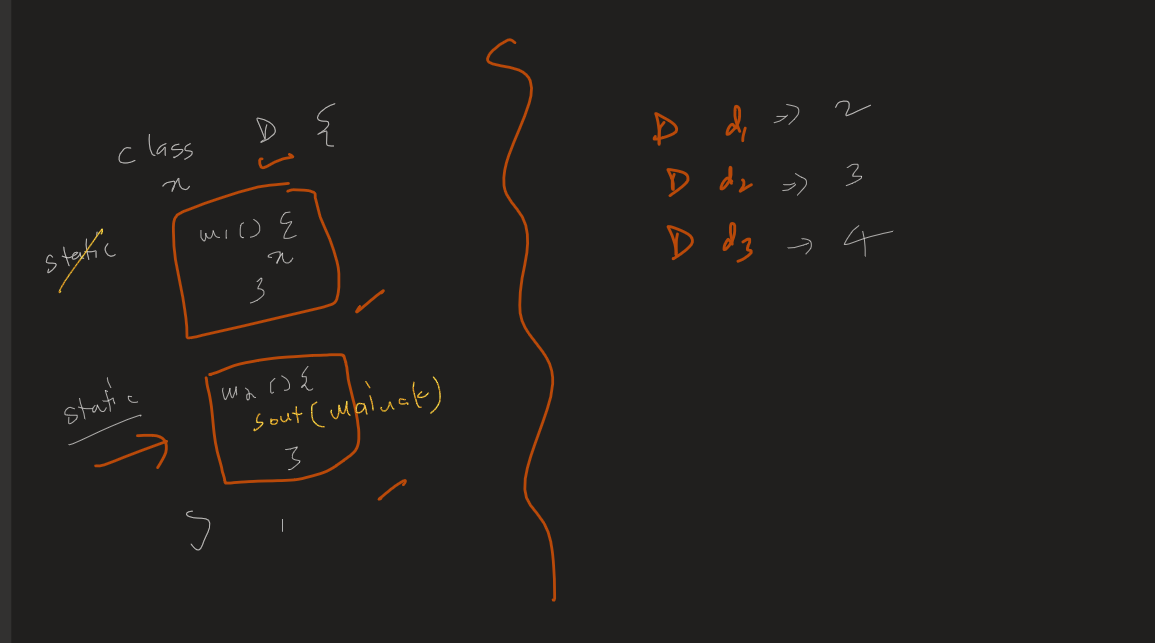 class D {
x
static m1() {
x
}
static m2() {
sout(Mainak)
}
}
D d1 => 2
D d2 => 3
D d3 -> 4